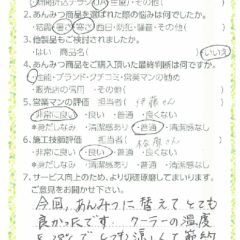 2.あんみつ商品を選ばれた際の悩みは何でしたか。
・結露・寒さ・暑さ・西日・防犯・騒音・その他(
3.他製品もご検討されましたか。
・はい 商品名( ・いいえ
4.あんみつ商品をご購入頂いた最終判断は何ですか。
・性能・ブランド・クチコミ・営業マンの勧め
・販売店の信用 ・その他(
5.営業マンの評価 担当者( 伊藤さん
非常に良い ・良い ・普通 ・良くない
*身だしなみ ・清潔感あり ・普通 ・清潔感なし
6.施工技師評価 担当者(
・非常に良い ・良い ・普通 ・良くない
*身だしなみ ・清潔感あり ・普通 ・清潔感なし
7.サービス向上のため、より切磋琢磨してまいります。
ご意見をお聞かせ下さい。
今回、あんみつに替えてとても
良かったです。クーラーの温度
を 28℃でとても涼しくて節約